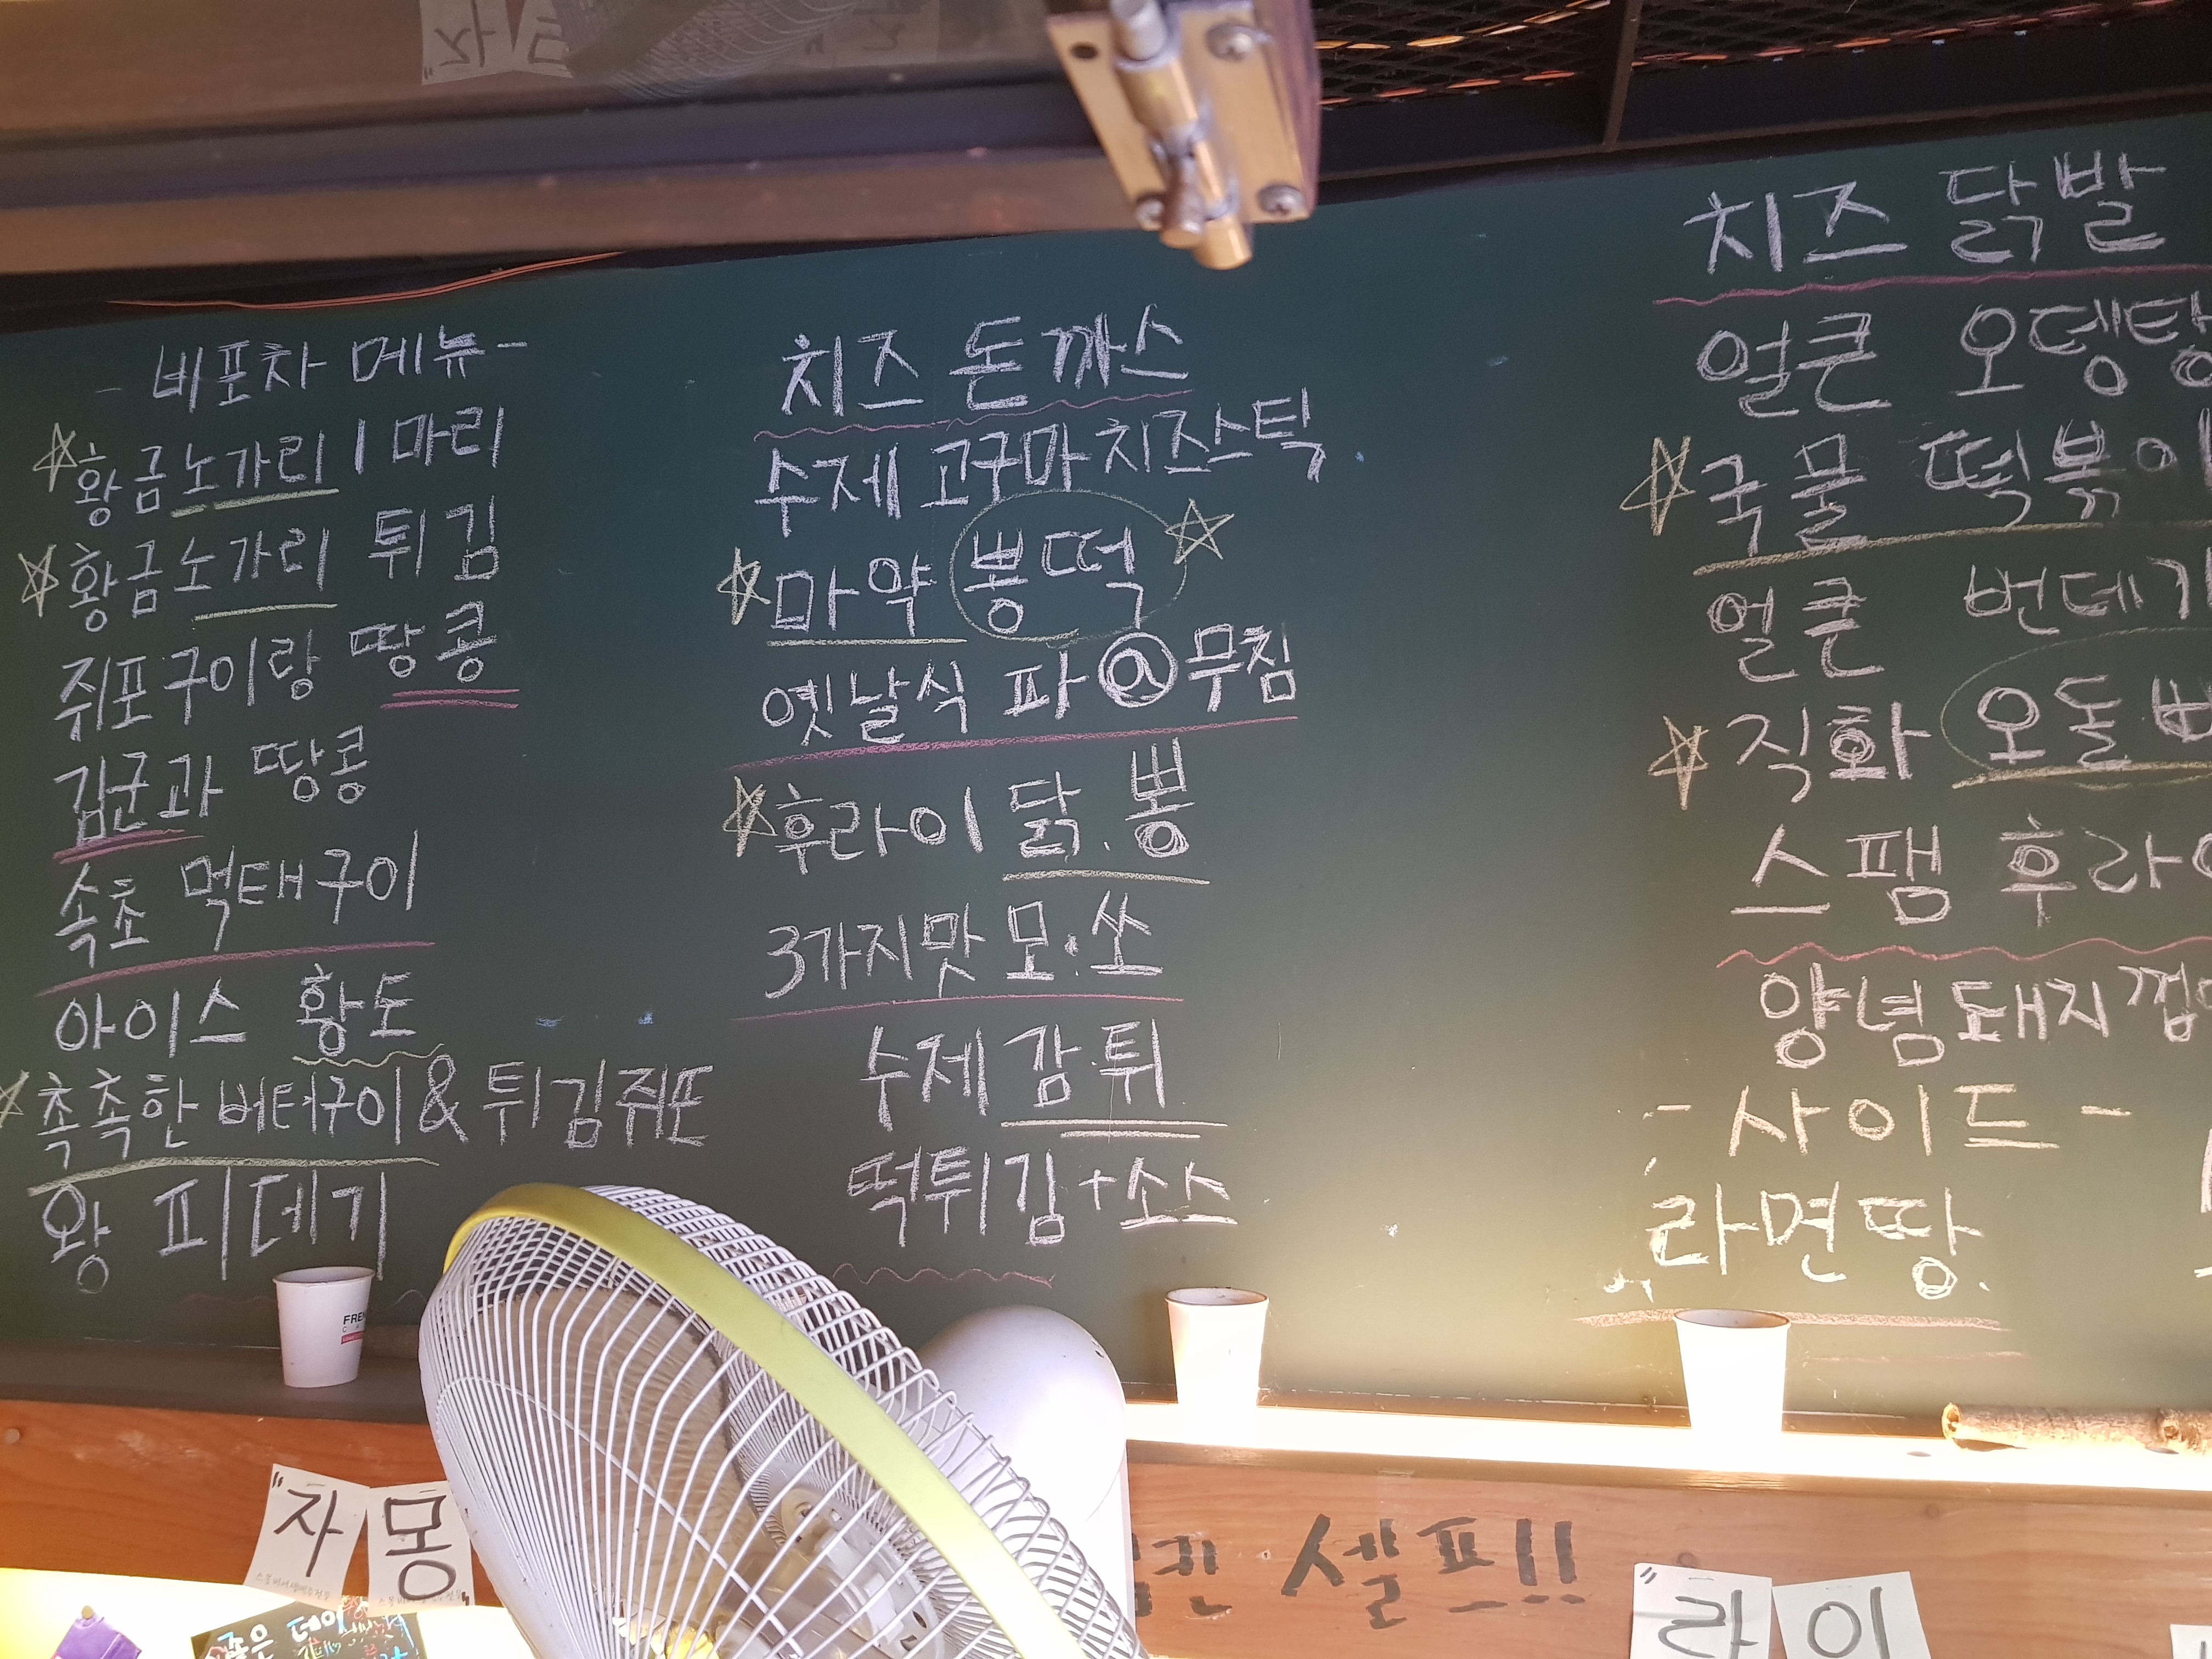 - 비포차 메뉴 -
☆황금노가리 1마리
☆황금노가리 튀김
쥐포구이랑 땅콩
김군과 땅콩
속초 먹태구이
아이스 황도
☆촉촉한 버터구이&튀김쥐포
왕 피데기
치즈 돈까스
수제 고구마치즈스틱
☆마약 뽕떡☆
옛날식 파@무침
☆후라이 닭.뽕
3가지맛 모.쏘
수제 감.튀
떡튀김+소스
치즈 닭발
얼큰 오뎅탕
☆국물 떡볶이
얼큰 번데기
☆직화 오돌
스팸 후라이
양념돼지껍
- 사이드 -
라면땅.
"자몽"
셀프!!
"라이
좋은 데이
FREN